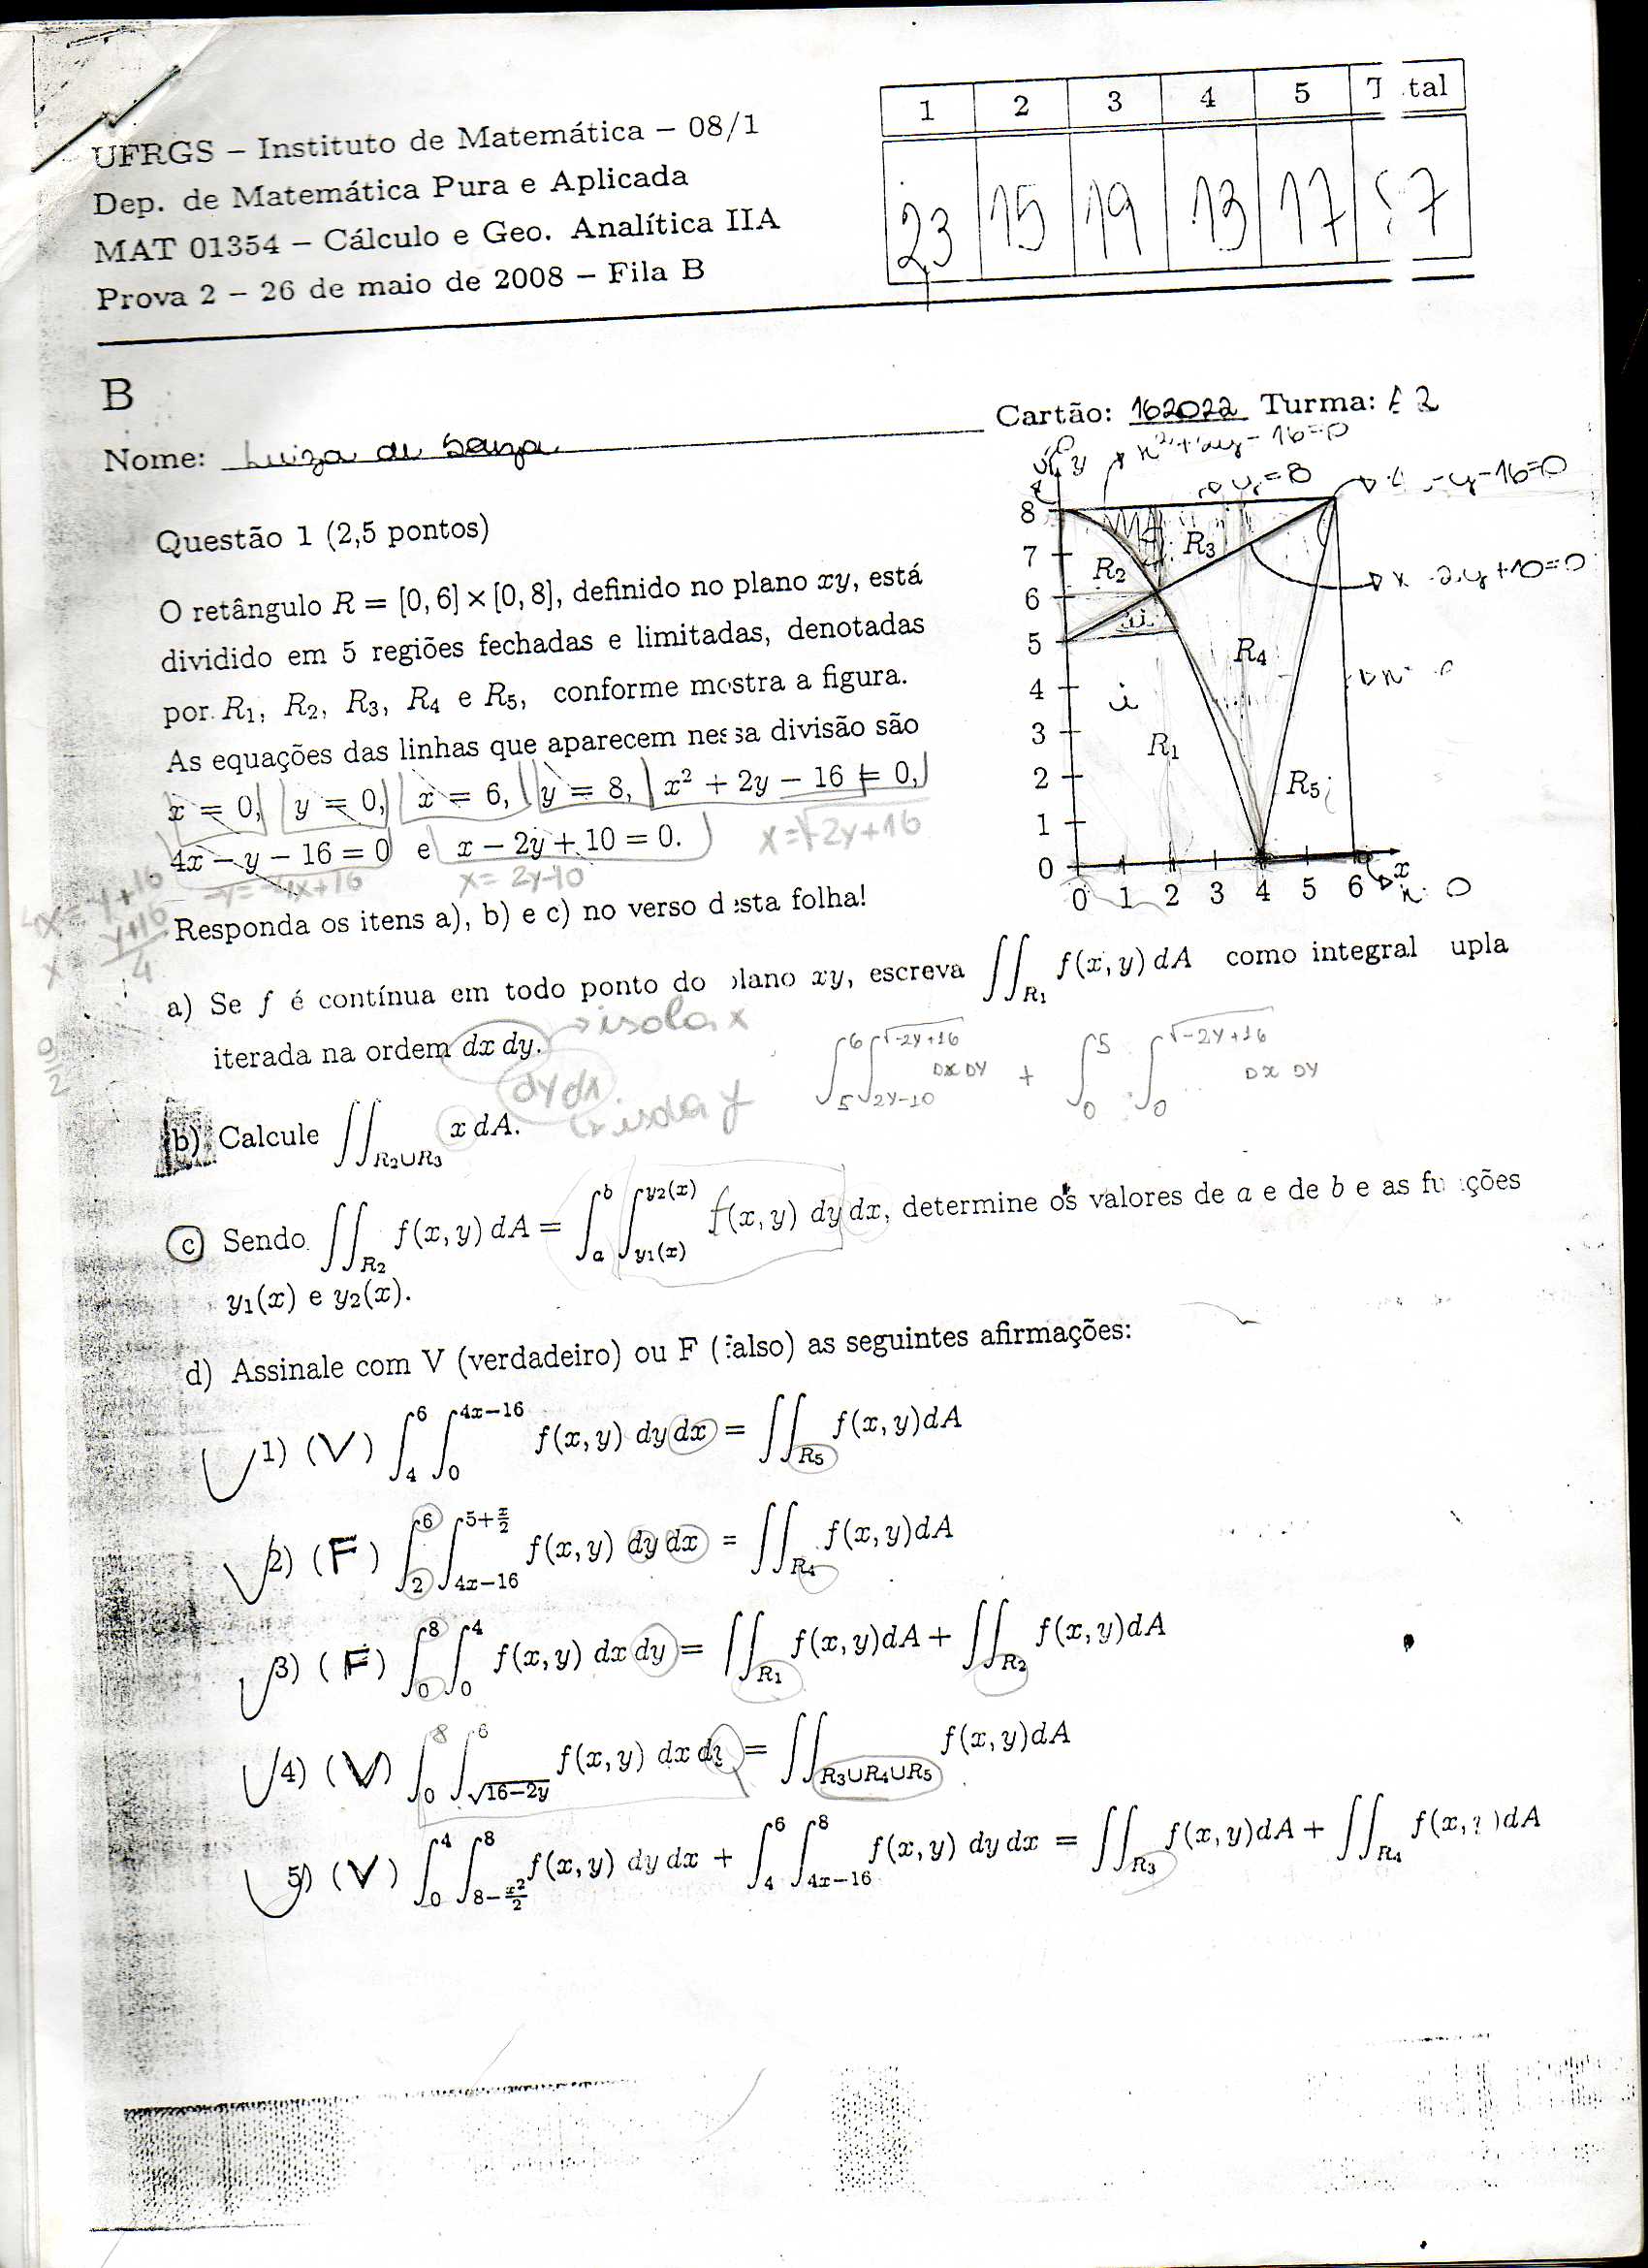 UFRGS – Instituto de Matemática – 08/1
Dep. de Matemática Pura e Aplicada
MAT 01354 – Cálculo e Geo. Analítica IIA
Prova 2 – 26 de maio de 2008 – Fila B
1 2 3 4 5 T tal
23 15 19 13 17 87
B
Nome: Luiza de Souza Cartão: 162022 Turma: A2
Questão 1 (2,5 pontos)
O retângulo R = [0, 6] × [0, 8], definido no plano xy, está
dividido em 5 regiões fechadas e limitadas, denotadas
por R₁, R₂, R₃, R₄ e R₅, conforme mostra a figura.
As equações das linhas que aparecem nessa divisão são
x = 0, y = 0, x = 6, y = 8, x² + 2y − 16 = 0,
4x − y − 16 = 0 e x − 2y + 10 = 0.
x = √-2y+16
4x = y+16
-y = -4x+16
x = 2y-10
x = y+16/4
Responda os itens a), b) e c) no verso desta folha!
y
x²+2y-16=0
y=8
-y-16=0
x-2y+10=0
8
7
6
5
4
3
2
1
0
0 1 2 3 4 5 6 x
R₂ R₃
R₄
R₁
R₅
a) Se f é contínua em todo ponto do plano xy, escreva ∫∫_R₁ f(x, y) dA como integral upla
iterada na ordem dx dy.
→ isola x
dy dx
↳ isola y
∫₅⁶ ∫_{2y-10}^{√-2y+16} dx dy + ∫₀⁵ ∫₀^{√-2y+16} dx dy
0/2
b) Calcule ∫∫_{R₂∪R₃} x dA.
c) Sendo ∫∫_R₂ f(x, y) dA = ∫_a^b ∫_{y₁(x)}^{y₂(x)} f(x, y) dy dx, determine os valores de a e de b e as funções
y₁(x) e y₂(x).
d) Assinale com V (verdadeiro) ou F (falso) as seguintes afirmações:
1) (V) ∫₄⁶ ∫₀^{4x−16} f(x, y) dy dx = ∫∫_R₅ f(x, y)dA
2) (F) ∫₂⁶ ∫_{4x−16}^{5+x/2} f(x, y) dy dx = ∫∫_R₄ f(x, y)dA
3) (F) ∫₀⁸ ∫₀⁴ f(x, y) dx dy = ∫∫_R₁ f(x, y)dA + ∫∫_R₂ f(x, y)dA
4) (V) ∫₀⁸ ∫_{√16−2y}^6 f(x, y) dx dy = ∫∫_{R₃∪R₄∪R₅} f(x, y)dA
5) (V) ∫₀⁴ ∫_{8−x²/2}^8 f(x, y) dy dx + ∫₄⁶ ∫_{4x−16}^8 f(x, y) dy dx = ∫∫_R₃ f(x, y)dA + ∫∫_R₄ f(x, y)dA